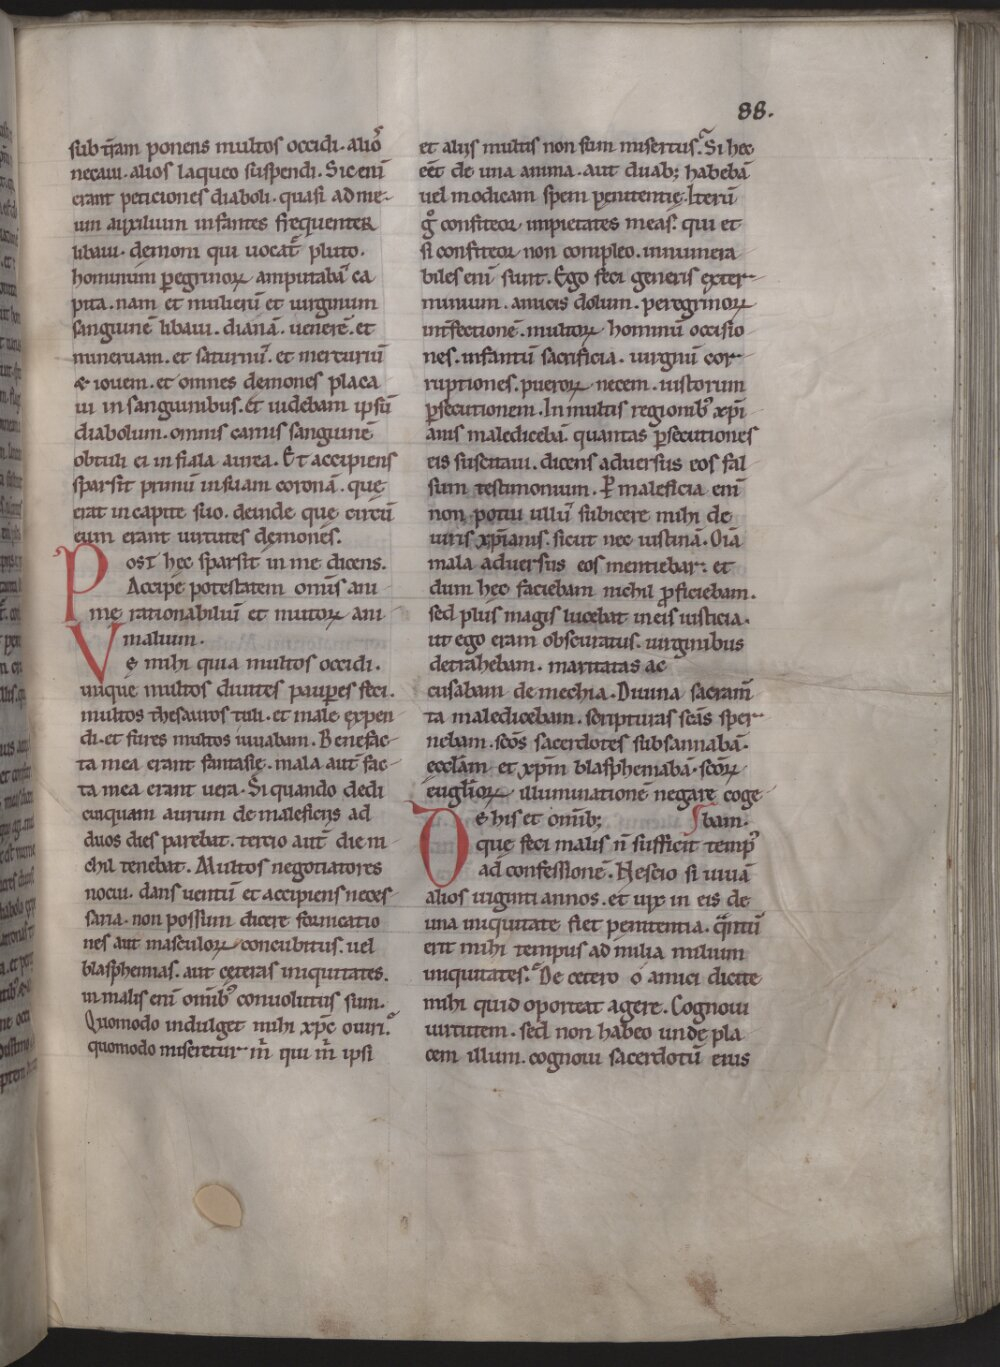 88.
sub tr̄am ponens multos occidi. alios̄
necaui. alios laqueo suspendi. Sic enī
erant peticiones diaboli. quasi ad me-
um auxilium infantes frequenter
libaui. demoni qui uocat᷑ pluto.
hominum peregrinoꝝ amputabā ca
pita. nam et mulierū et uirginum
sanguinē libaui. dianā. uenerē. et
mineruam. et saturnū. et mercuriū
& iouem. et omnes demones placa
ui in sanguinibus. et uidebam ipsū
diabolum. omnis carnis sanguinē
obtuli ei in fiala aurea. Et accipiens
sparsit primū in suam coronā. que
erat in capite suo. deinde que circū
eum erant uirtutes demones.
Post hec sparsit in me dicens.
Accipe potestatem om̄is ani
me rationabiliū et mutoꝝ ani
malium.
Ve mihi quia multos occidi.
unque multos diuites pauꝑes feci.
multos thesauros tuli. et male expen
di. et fures multos iuuabam. Benefac-
ta mea erant fantasie. mala aut̄ fac-
ta mea erant uera. Si quando dedi
cuiquam aurum de maleficiis ad
duos dies parebat. tercio aut̄ die ni
chil tenebat. Multos negotiatores
nocui. dans uentū et accipiens neces-
saria. non possum dicere fornicatio
nes aut masculoꝝ concubitus. uel
blasphemias. aut ceteras iniquitates.
in malis enī omib᷒ conuolutus sum.
Quomodo indulget mihi xp̄c ouiri.
quomodo miseretur m̄ qui m̄ ipsi
et aliis multis non sum misertus. Si hec
eēt de una anima. aut duab; habebā
uel modicam spem penitentie. Iterū
g̊ confiteor impietates meas. qui et
si confiteor non compleo. innumera
biles enī sunt. Ego feci generis exter-
minium. amicis dolum. peregrinoꝝ
int̄fectionē. multoꝝ hominū occisio
nes. infantū sacrificia. uirginū cor-
ruptiones. pueroꝝ necem. iustorum
ꝑsecutionem. In multis regionib᷒ xp̄i
anis maledicebā. quantas ꝑsecutiones
eis suscitaui. dicens aduersus eos fal
sum testimonium. Ꝑ maleficia enī
non potui ullū subicere mihi de
uiris xp̄ianis. sicut nec iustina. Oīa
mala aduersus eos mentiebar: et
dum hec faciebam nichil ꝓficiebam.
sed plus magis lucebat in eis iusticia.
ut ego eram obscuratus. uirginibus
detrahebam. maritatas ac
cusabam de mechia. Diuina sacram̄
ta maledicebam. scripturas scās sper-
nebam. scōs sacerdotes subsannabā.
eccl̄am et xp̄m blasphemabā. scōꝝ
eugl̄ioꝝ illuminatione negare coge
De his et omib; bam.
que feci malis n̄ sufficit temp᷒
ad confessionē. Nescio si uiuā
alios uiginti annos. et uix in eis de
una iniquitate fiet penitentia. q̄ntū
erit mihi tempus ad milia milium
iniquitates. De cetero o amici dicite
mihi quid oporteat agere. Cognoui
uirtutem. sed non habeo unde pla
cem illum. cognoui sacerdotū eius